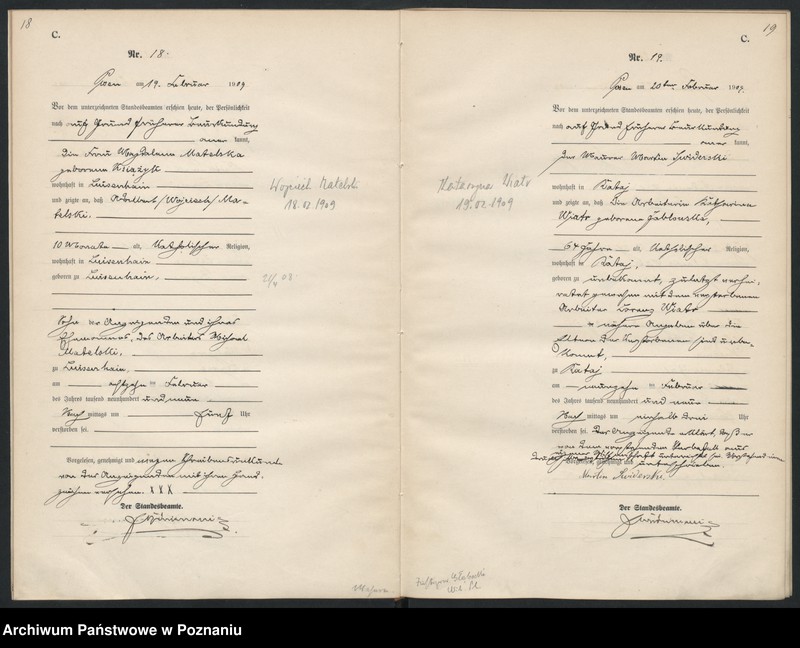 18
C.
Nr. 18.
Posen am 19. Februar 1909
Vor dem unterzeichneten Standesbeamten erschien heute, der Persönlichkeit
nach auf Grund früherer Beurkundung
kannt,
Die Frau Magdalena Matelska
geborene Książyk
wohnhaft in Luisenhain
und zeigte an, daß Adalbert /Wojciech/ Ma-
telski.
10 Monate alt, Katholischer Religion,
wohnhaft in Luisenhain
geboren zu Luisenhain,
Sohn der Anzeigenden und ihres
Ehemannes, des Arbeiters Michael
Matelski,
zu Luisenhain,
am achtzehn ten Februar
des Jahres tausend neunhundert und neun
Nach mittags um fünf Uhr
verstorben sei.
Vorgelesen, genehmigt und wegen Schreibensunkunde
von der Anzeigenden mit ihrem Hand-
zeichen versehen. XXX
Der Standesbeamte.
Wojciech Matelski
18.02 1909
19
C.
Nr. 19.
Posen am 20ten Februar 1909.
Vor dem unterzeichneten Standesbeamten erschien heute, der Persönlichkeit
nach auf Grund früherer Beurkundung
kannt,
der Maurer Martin Swiderski
wohnhaft in Rataj
und zeigte an, daß die Arbeiterin Katharina
Wiatr geborene Jablonska,
64 Jahre alt, Katholischer Religion,
wohnhaft in Rataj,
geboren zu unbekannt, zuletzt verhei-
ratet gewesen mit dem verstorbenen
Arbeiter Lorenz Wiatr
nähere Angaben über die
Eltern der Verstorbenen sind unbe-
kannt,
zu Rataj
am neunzehn ten Februar
des Jahres tausend neunhundert und neun
Nach mittags um einhalb drei Uhr
verstorben sei. Der Anzeigende erklärt, daß er
von dem vorstehenden Sterbefall aus
eigener Wissenschaft unterrichtet sei.
Vorgelesen, genehmigt und unterschrieben.
Martin Swiderski.
Der Standesbeamte.
Katarzyna Wiatr
19.02 1909
Archiwum Państwowe w Poznaniu